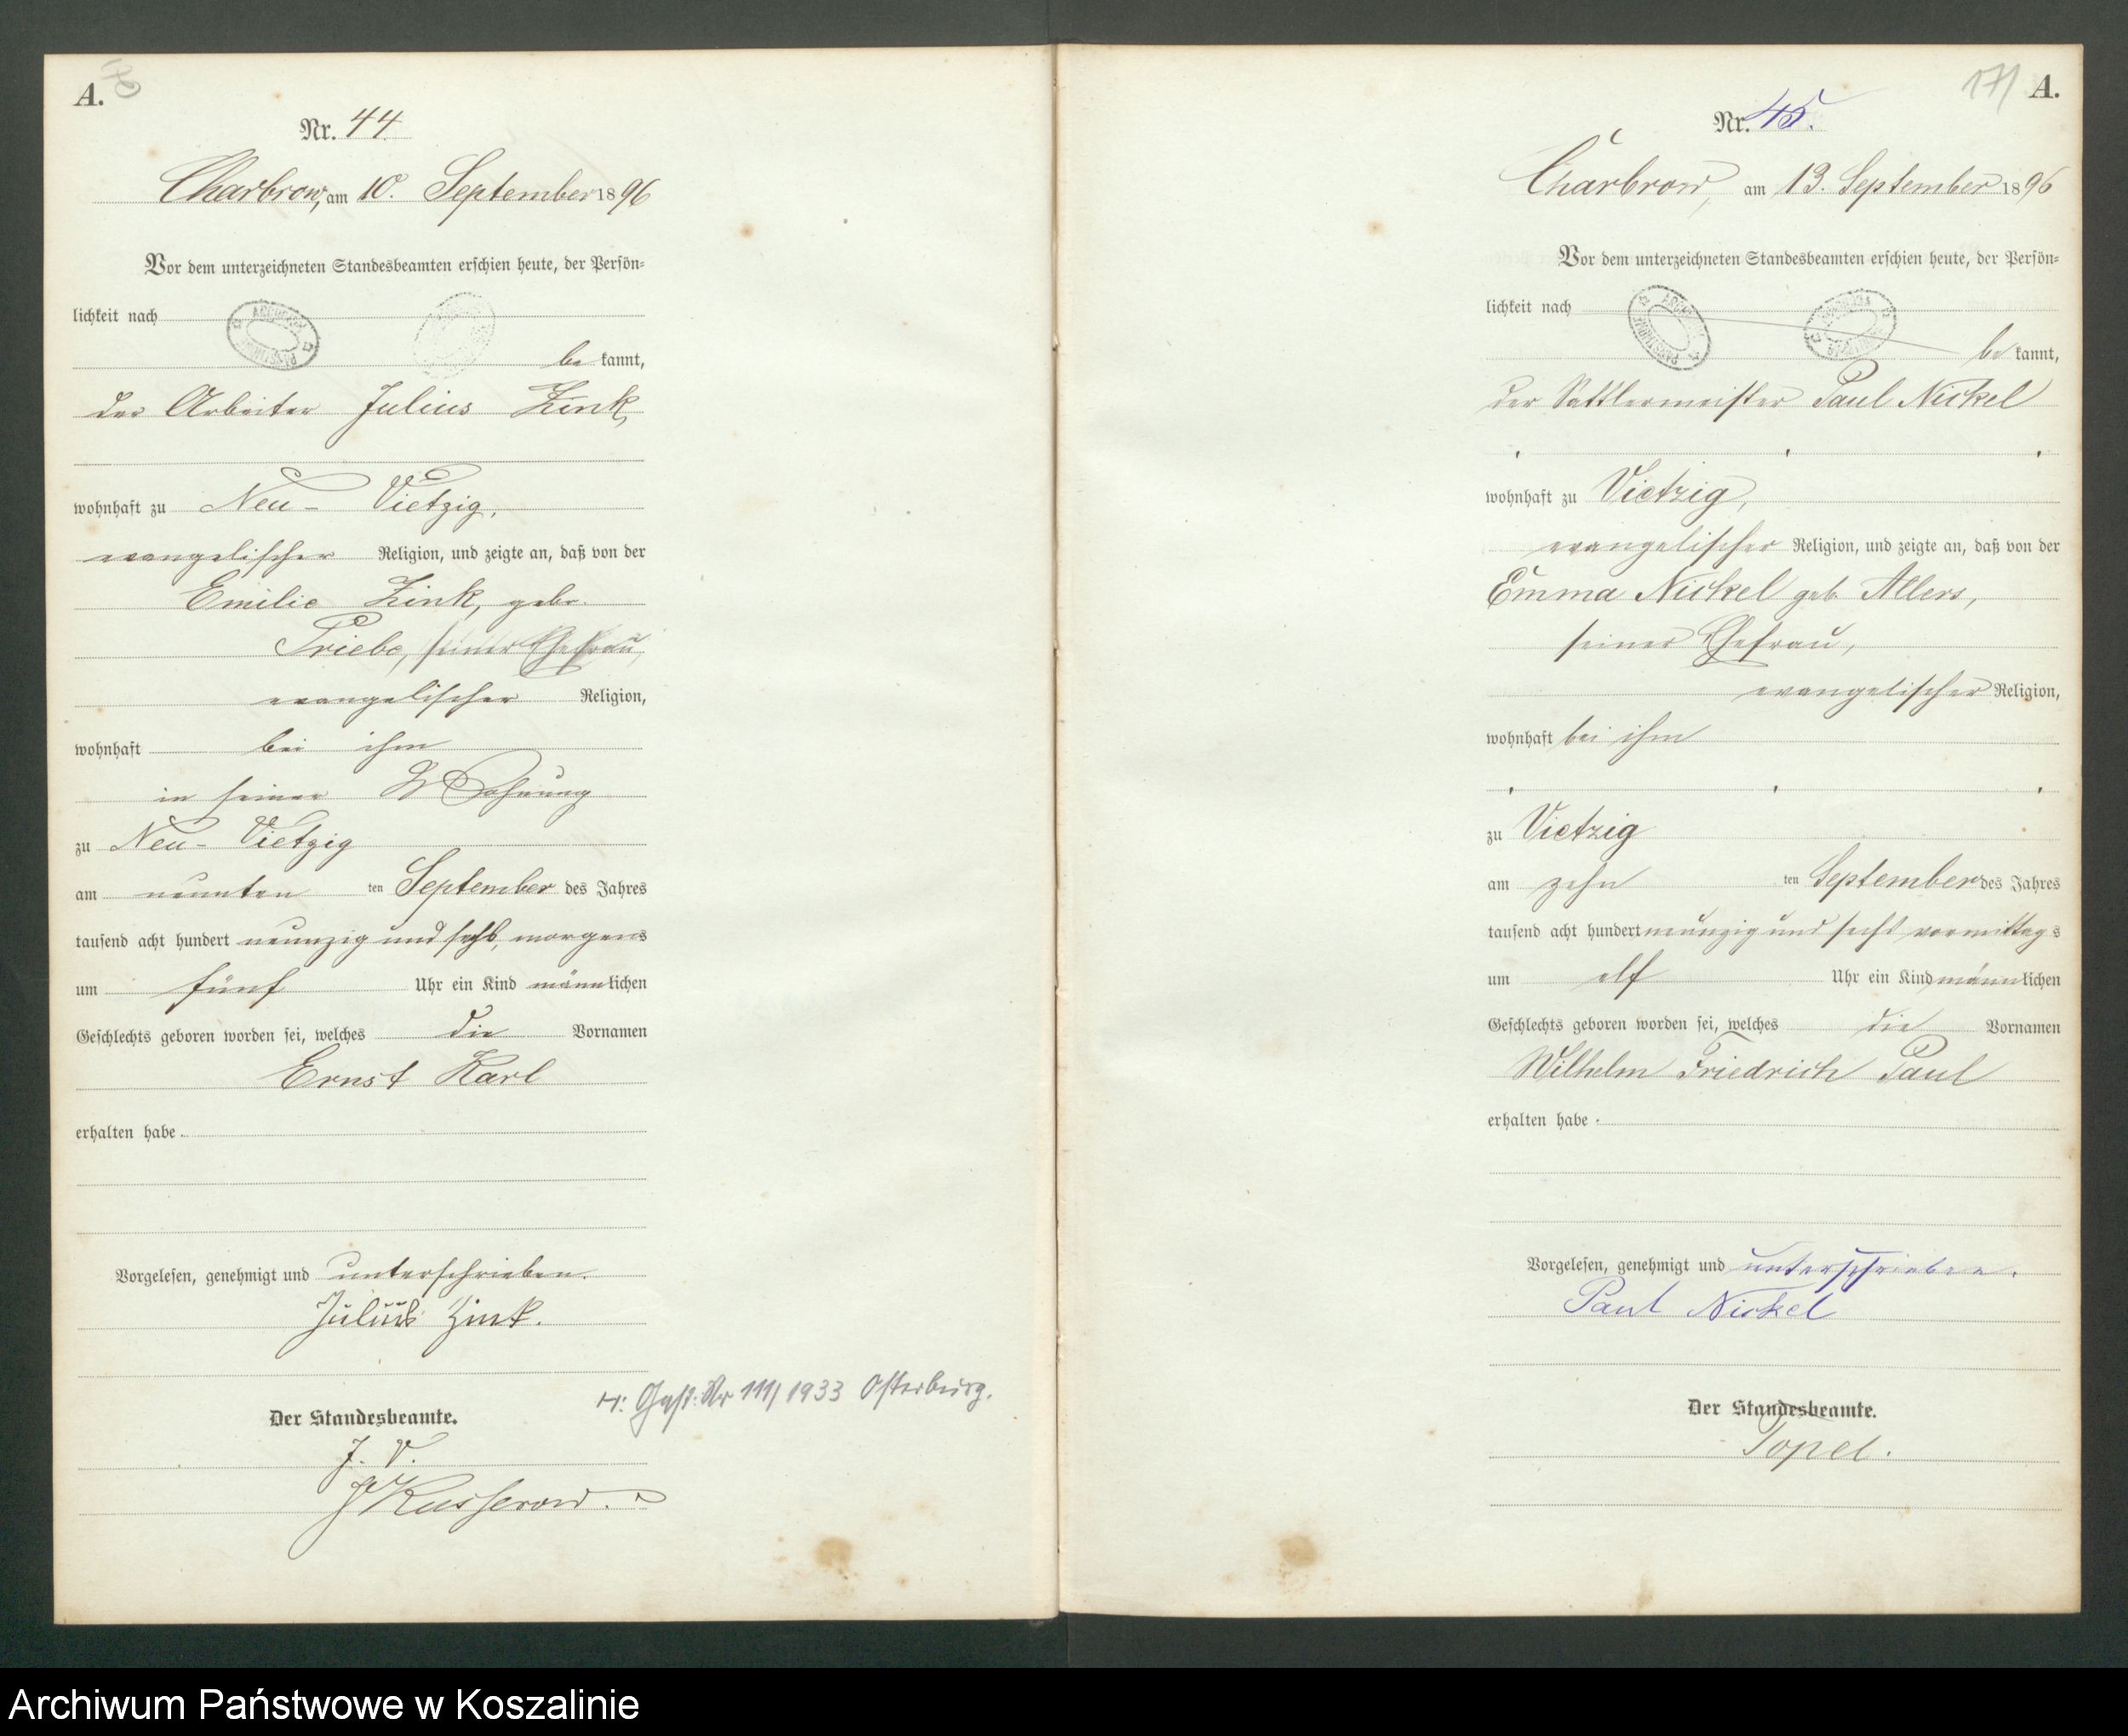 A.
Nr. 44
Charbrow, am 10. September 1896
Vor dem unterzeichneten Standesbeamten erschien heute, der Persön-
lichkeit nach
be kannt,
der Arbeiter Julius Zink,
wohnhaft zu Neu-Vietzig,
evangelischer Religion, und zeigte an, daß von der
Emilie Zink, geb.
Priebe, seiner Ehefrau,
evangelischer Religion,
wohnhaft bei ihm
in seiner Wohnung
zu Neu-Vietzig
am neunten ten September des Jahres
tausend acht hundert neunzig und sechs, morgens
um fünf Uhr ein Kind männlichen
Geschlechts geboren worden sei, welches die Vornamen
Ernst Karl
erhalten habe.
Vorgelesen, genehmigt und unterschrieben.
Julius Zink.
Nr 111/1933 Osterburg.
Der Standesbeamte.
J. V.
Kusserow.
171 A.
Nr. 45.
Charbrow, am 13. September 1896
Vor dem unterzeichneten Standesbeamten erschien heute, der Persön-
lichkeit nach
be kannt,
der Sattlermeister Paul Nickel
wohnhaft zu Vietzig,
evangelischer Religion, und zeigte an, daß von der
Emma Nickel geb. Allers,
seiner Ehefrau,
evangelischer Religion,
wohnhaft bei ihm
zu Vietzig
am zehn ten September des Jahres
tausend acht hundert neunzig und sechs vormittags
um elf Uhr ein Kind männlichen
Geschlechts geboren worden sei, welches die Vornamen
Wilhelm Friedrich Paul
erhalten habe.
Vorgelesen, genehmigt und unterschrieben.
Paul Nickel
Der Standesbeamte.
Topel.
Archiwum Państwowe w Koszalinie